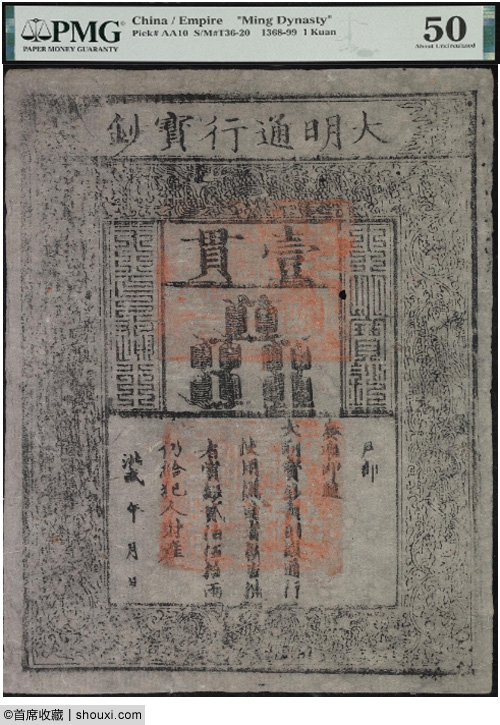 PMG
PAPER MONEY GUARANTY
China / Empire "Ming Dynasty"
Pick# AA10 S/M#T36-20 1368-99 1 Kuan
50
About Uncirculated
大明通行寳鈔
壹貫
大明寳鈔
天下通行
戶部
奏准印造
大明寳鈔與銅錢通行
使用偽造者斬告捕
者賞銀貳伯伍拾兩
仍給犯人財產
洪武 年 月 日
©首席收藏 | shouxi.com